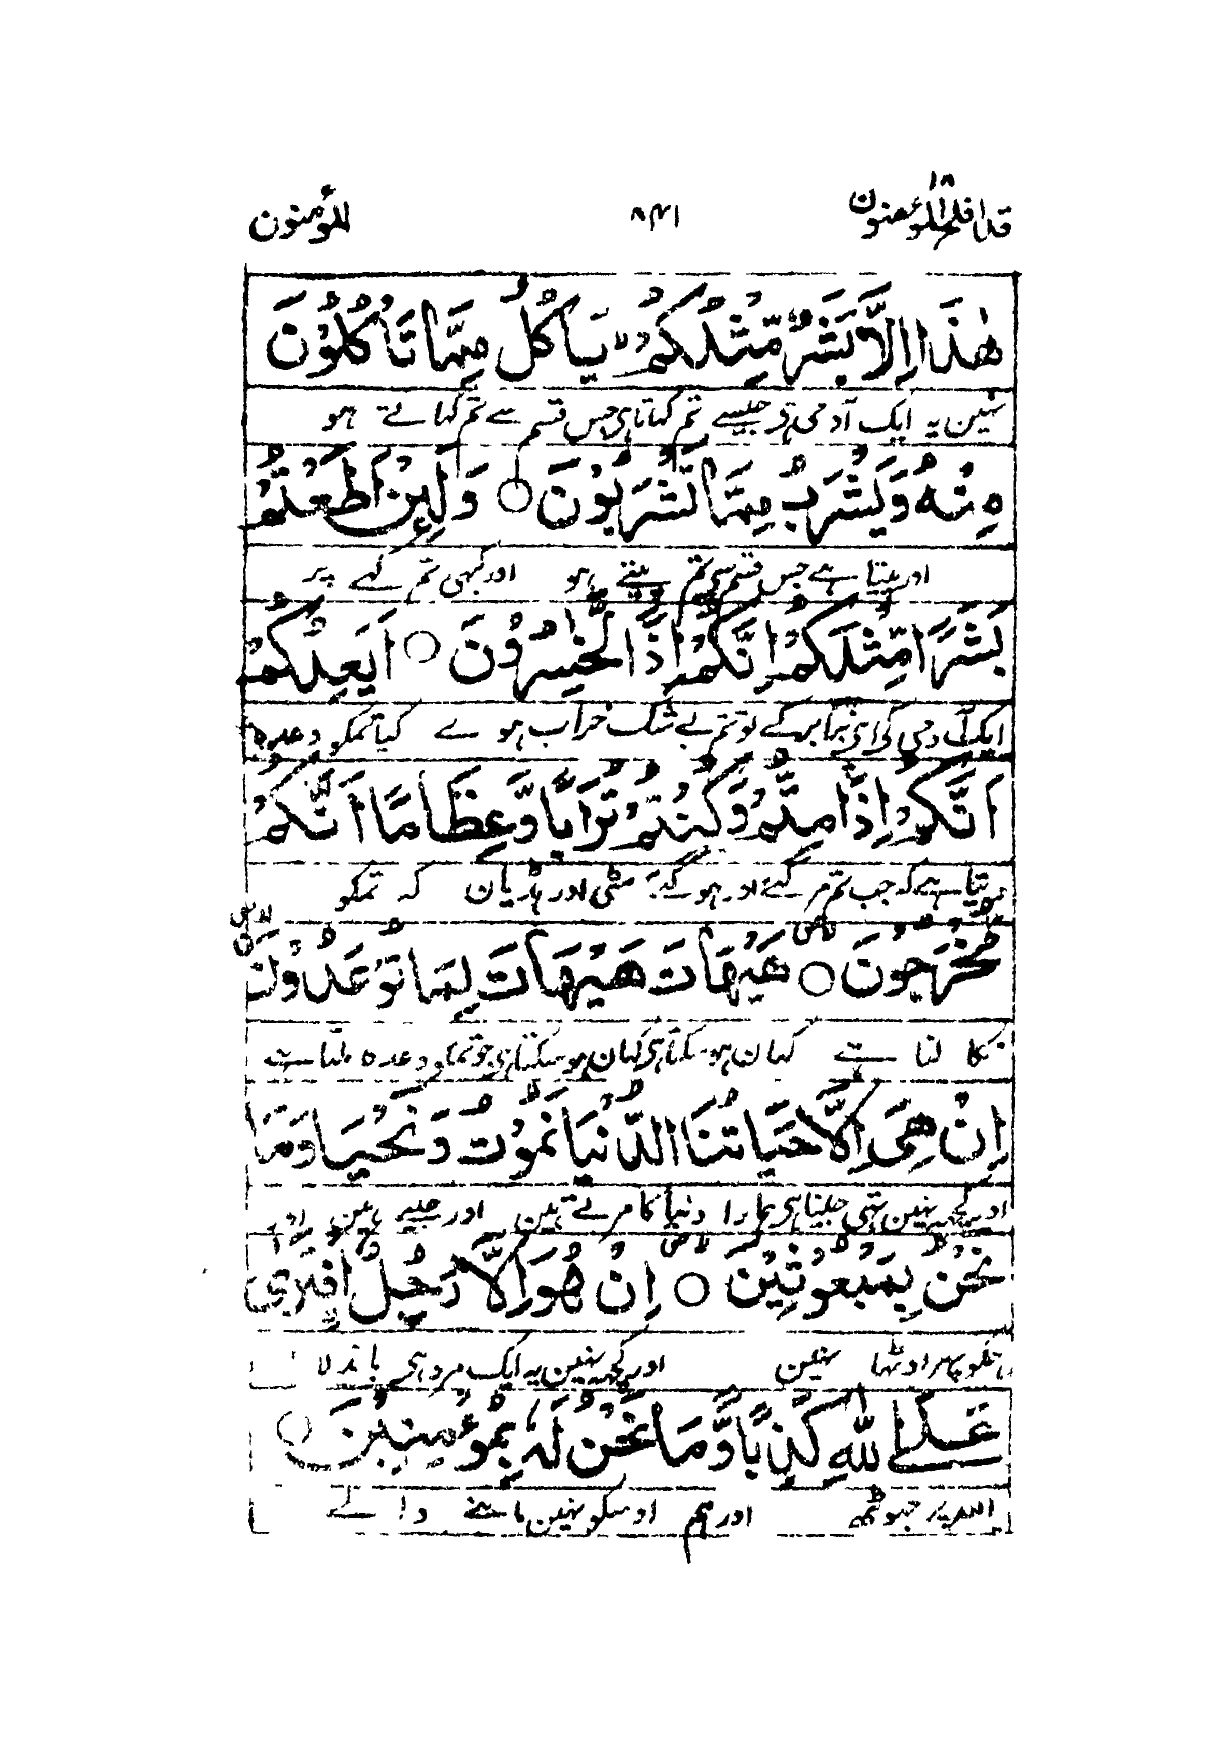 قد افلح المؤمنون ۱۸ ۸۴۱ المؤمنون
هٰذَا اِلَّا بَشَرٌ مِّثْلُكُمْ ۙ يَاْكُلُ مِمَّا تَاْكُلُوْنَ
نہین یہ ایک آدمی ہی جیسے تم کہاتا ہی جس قسم سے تم کہاتے ہو
مِنْهُ وَيَشْرَبُ مِمَّا تَشْرَبُوْنَ ○ وَلَئِنْ اَطَعْتُمْ
اور پیتا ہے جس قسم سی تم پیتے ہو اور کبہی تم کہے پر
بَشَرًا مِّثْلَكُمْ اِنَّكُمْ اِذًا لَّخٰسِرُوْنَ ○ اَيَعِدُكُمْ
ایک آدمی کی اپنی برابر کے تو تم بے شک خراب ہو ے کیا تمکو وعدہ
اَنَّكُمْ اِذَا مِتُّمْ وَكُنْتُمْ تُرَابًا وَّعِظَامًا اَنَّكُمْ
دیتا ہے کہ جب تم مر گئے اور ہو گئے مٹی اور ہڈیان کہ تمکو
مُّخْرَجُوْنَ ○ هَيْهَاتَ هَيْهَاتَ لِمَا تُوْعَدُوْنَ
نکا لنا ہے کہان ہو سکتا ہی کہان ہو سکتا ہی جو تمکو وعدہ ملتا ہے
اِنْ هِيَ اِلَّا حَيَاتُنَا الدُّنْيَا نَمُوْتُ وَنَحْيَا وَمَا
اور کچہہ نہین یہی جینا ہی ہمارا دنیا کا مرتے ہین اور جیتے ہین اور
نَحْنُ بِمَبْعُوْثِيْنَ ○ اِنْ هُوَ اِلَّا رَجُلُ اِفْتَرٰى
ہمکو پہر اوٹہا نہین اور کچہہ نہین یہ ایک مرد ہی باندلا
عَلَى اللّٰهِ كَذِبًا وَّمَا نَحْنُ لَهٗ بِمُؤْمِنِيْنَ ○
اللہ پر جہوٹہہ اور ہم اوسکو نہین ماننے والے